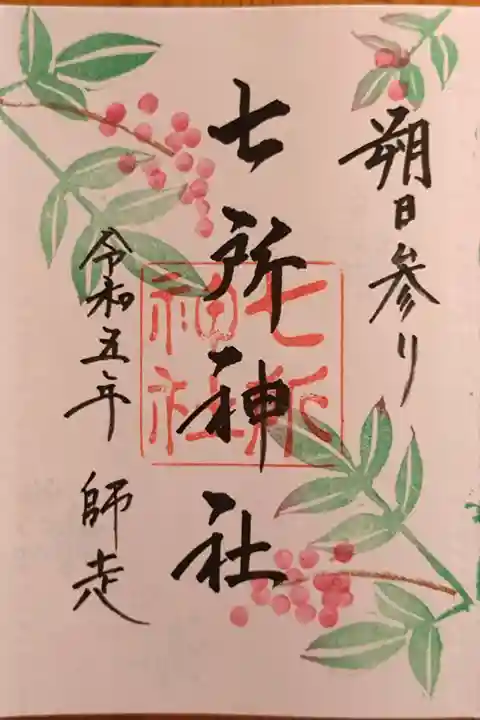 朔日参り
七所神社
七所
神社
令和五年 師走